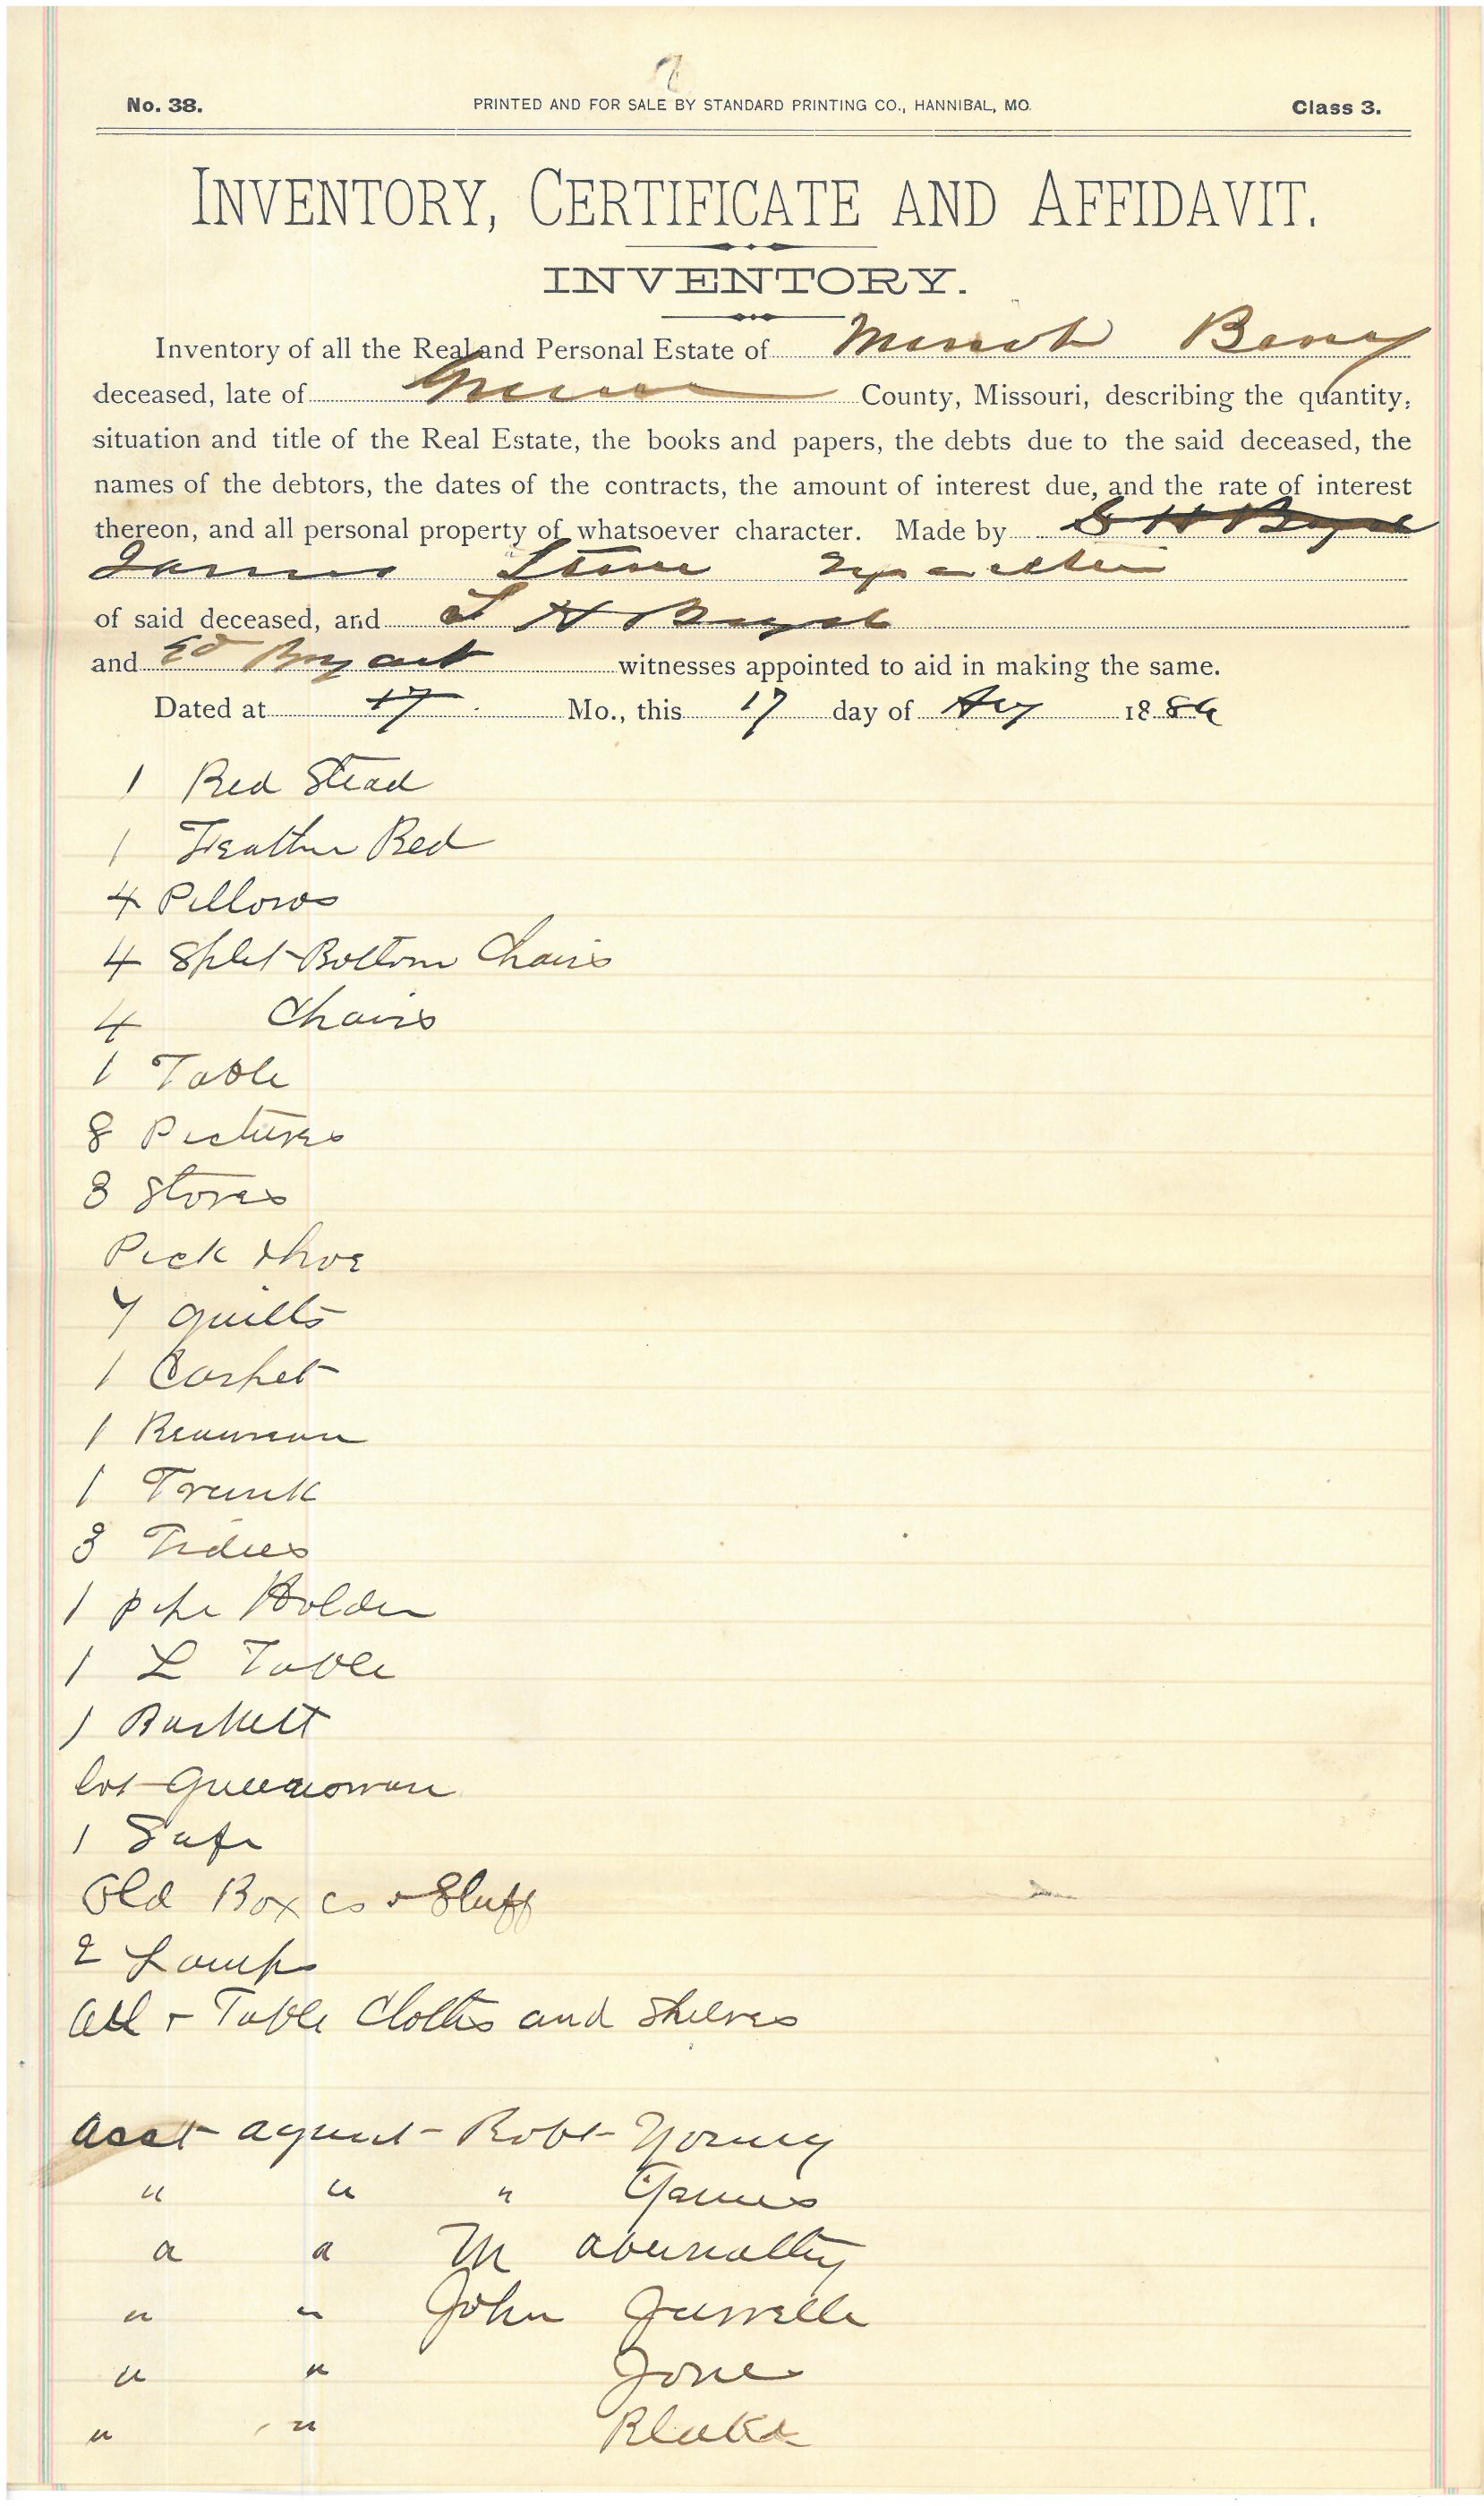 No. 38. PRINTED AND FOR SALE BY STANDARD PRINTING CO., HANNIBAL, MO. Class 3.
INVENTORY, CERTIFICATE AND AFFIDAVIT.
INVENTORY.
Inventory of all the Real and Personal Estate of
deceased, late of Greene County, Missouri, describing the quantity,
situation and title of the Real Estate, the books and papers, the debts due to the said deceased, the
names of the debtors, the dates of the contracts, the amount of interest due, and the rate of interest
thereon, and all personal property of whatsoever character. Made by
James Stone
of said deceased, and
and Ed Bryant witnesses appointed to aid in making the same.
Dated at 17 Mo., this 17 day of Aug 18
1 Bed Stead
1 Feather Bed
4 Pillows
4 Split Bottom Chairs
4 Chairs
1 Table
8 Pictures
3 Stoves
Pick & hoe
7 quilts
1 Carpet
1 Bureau
1 Trunk
3 Tidies
1 pipe Holder
1 L Table
1 Baskett
lot
1 Safe
Old Boxes & Stuff
2 Lamps
All + Table Cloths and Shelves
acct against Robt Young
" " " James
" " M Abernathy
" " John
" " Jone
" "